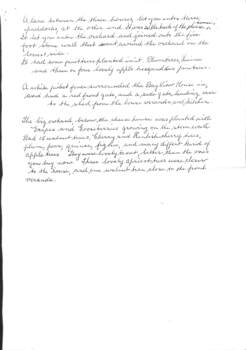 A lane between the stone houses, let you enter three
paddocks at the other end. It was at the back of the
It let you enter the orchard and joined onto the five
foot stone wall that went around the orchard on the
It had some fruit trees planted in it. Plum trees,
and then on four lovely apple trees
A white picket fence surrounded the Big Stone House in,
and had a red front gate, and a side gate leading over
to the shed from the house verandah and kitchen.
The big orchard below the stone house was planted with
Grapes and Gooseberries growing on the stone walls
Had 16 walnut trees, Cherry and trees,
plum, pear, quinces, fig tree, and many different kinds of
apple trees. They were lovely to eat, better than the ones
you buy now. Three lovely apricot trees were closer
to the house, and one walnut tree close to the front
verandah.